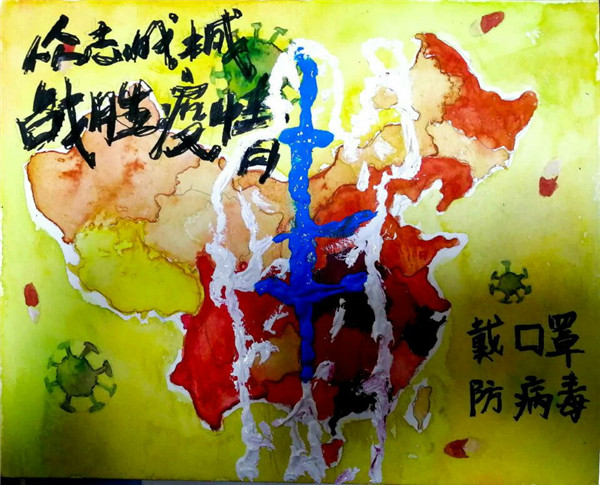 众志成城
战胜疫情
戴口罩
防病毒